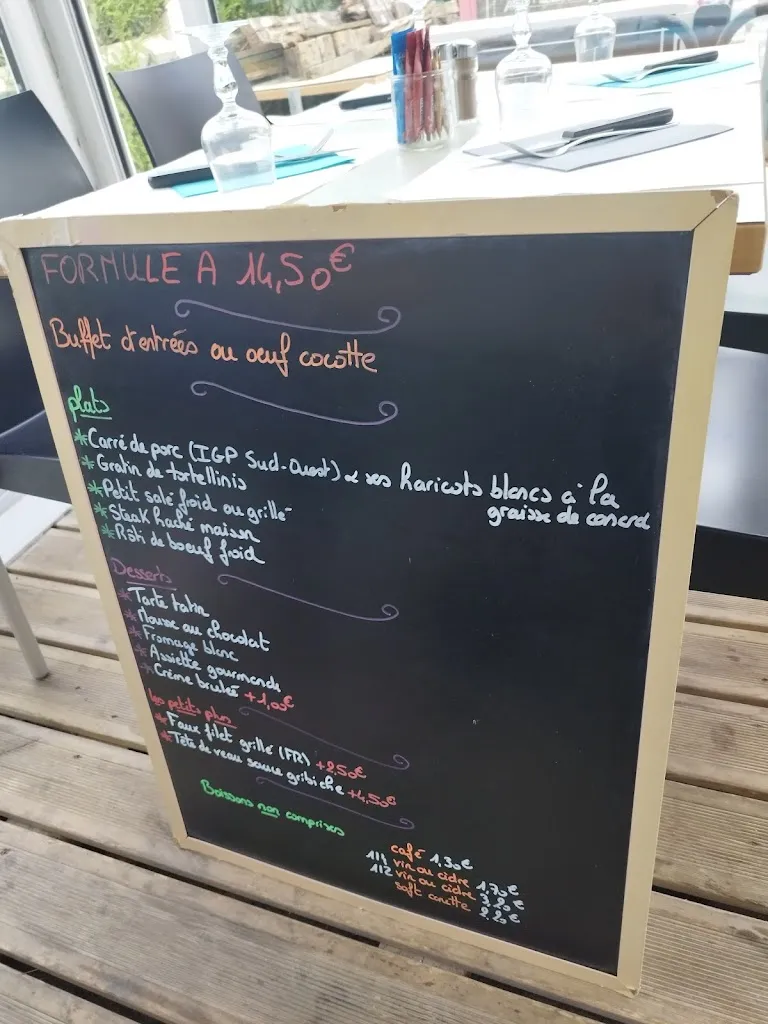 FORMULE A 14,50€
Buffet d'entrées ou oeuf cocotte
plats
* Carré de porc (IGP Sud-Ouest) & ses haricots blancs à la
graisse de canard
* Gratin de tortellinis
* Petit salé froid ou grillé
* Steak haché maison
* Rôti de boeuf froid
Desserts
* Tarte tatin
* Mousse au chocolat
* Fromage blanc
* Assiette gourmande
* Crème brulée +1,00€
les petits plus
* Faux filet grillé (FR) +2,50€
* Tête de veau sauce gribiche +4,50€
Boissons non comprises
café 1,30€
1/4 vin ou cidre 1,70€
1/2 vin ou cidre 3,20€
soft 2,20€